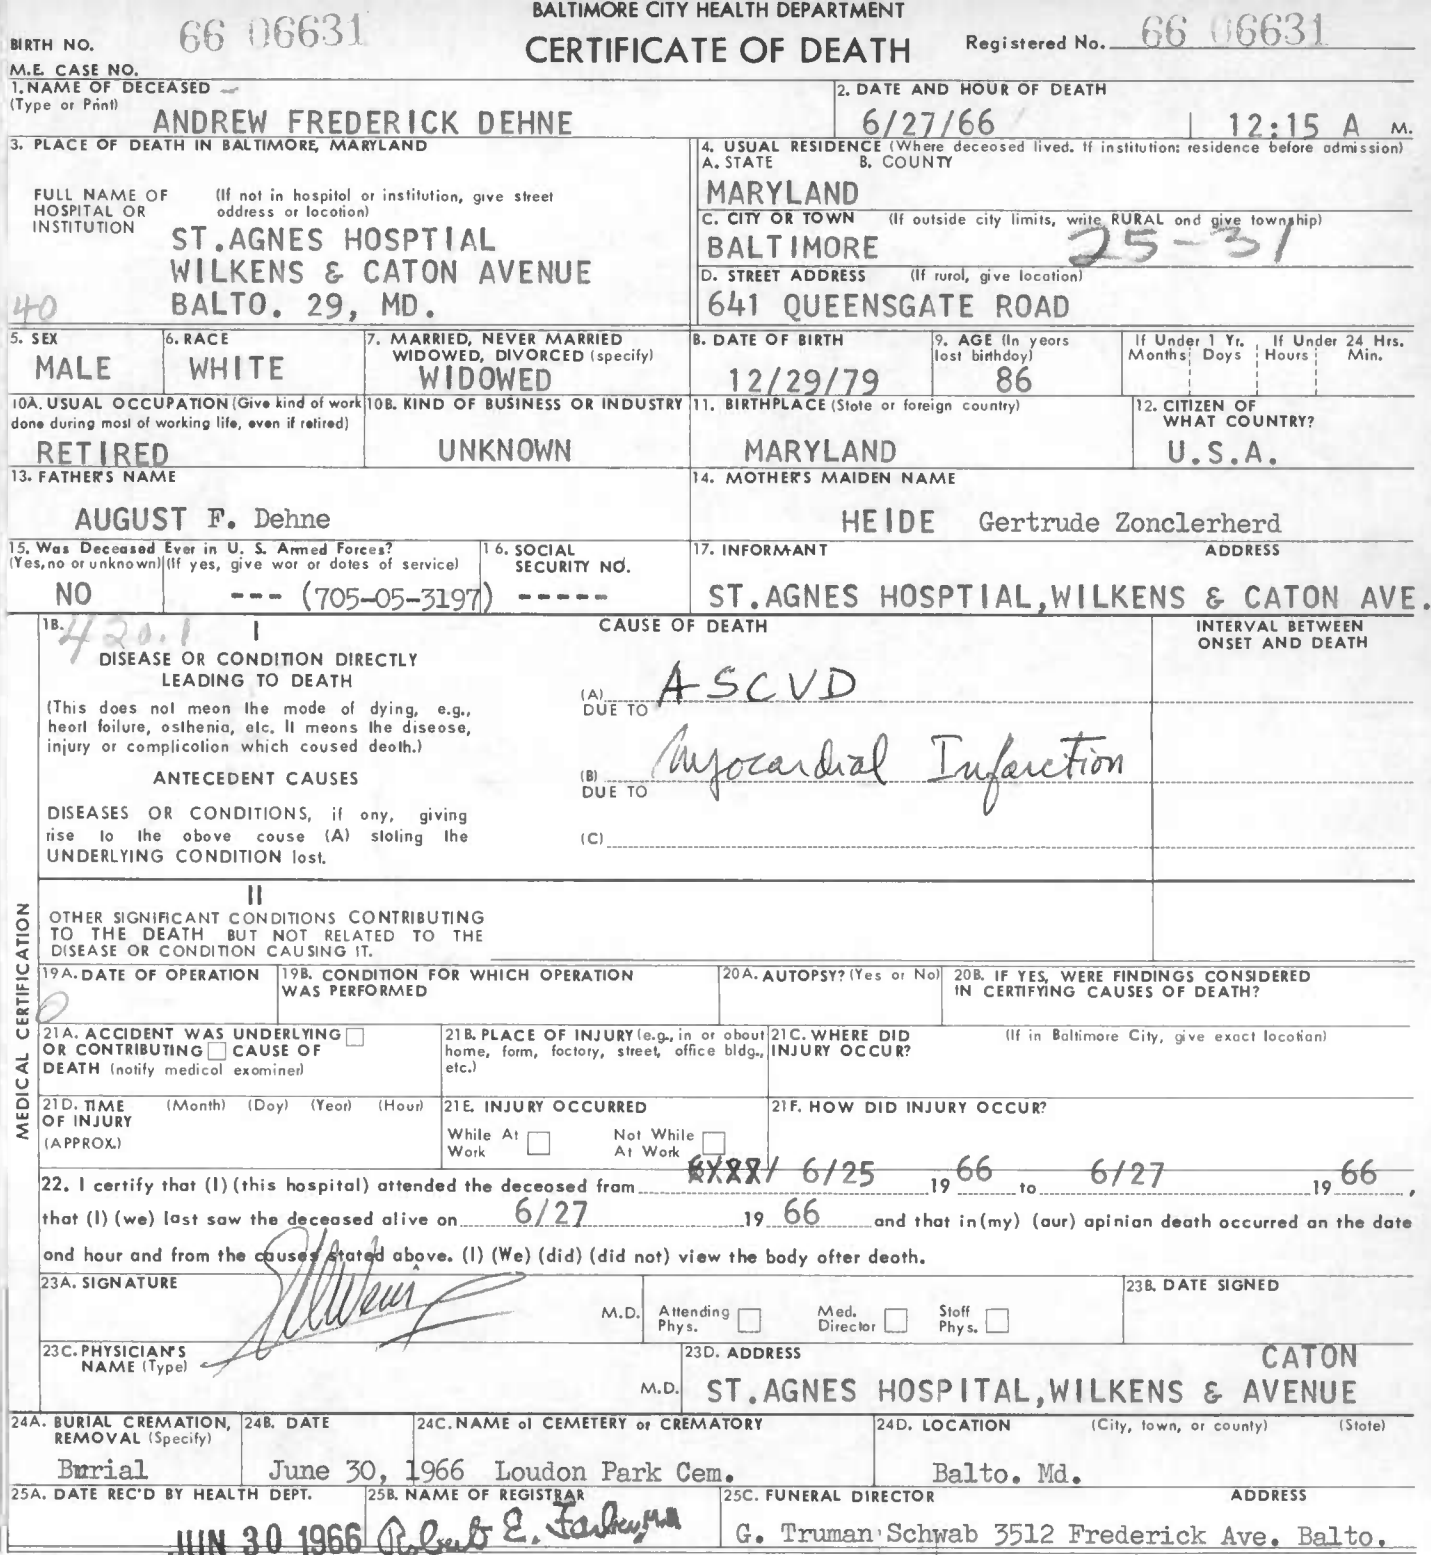 BALTIMORE CITY HEALTH DEPARTMENT
CERTIFICATE OF DEATH
BIRTH NO. 66 06631
Registered No. 66 06631
M.E. CASE NO.
1. NAME OF DECEASED
(Type or Print)
ANDREW FREDERICK DEHNE
2. DATE AND HOUR OF DEATH
6/27/66 12:15 A M.
3. PLACE OF DEATH IN BALTIMORE, MARYLAND
FULL NAME OF HOSPITAL OR INSTITUTION
(If not in hospital or institution, give street address or location)
ST.AGNES HOSPTIAL
WILKENS & CATON AVENUE
40 BALTO. 29, MD.
4. USUAL RESIDENCE (Where deceased lived. If institution: residence before admission)
A. STATE B. COUNTY
MARYLAND
C. CITY OR TOWN (If outside city limits, write RURAL and give township)
BALTIMORE 25-31
D. STREET ADDRESS (If rural, give location)
641 QUEENSGATE ROAD
5. SEX
MALE
6. RACE
WHITE
7. MARRIED, NEVER MARRIED
WIDOWED, DIVORCED (specify)
WIDOWED
8. DATE OF BIRTH
12/29/79
9. AGE (In years
last birthday)
86
If Under 1 Yr. If Under 24 Hrs.
Months Days Hours Min.
10A. USUAL OCCUPATION (Give kind of work
done during most of working life, even if retired)
RETIRED
10B. KIND OF BUSINESS OR INDUSTRY
UNKNOWN
11. BIRTHPLACE (State or foreign country)
MARYLAND
12. CITIZEN OF
WHAT COUNTRY?
U.S.A.
13. FATHER'S NAME
AUGUST F. Dehne
14. MOTHER'S MAIDEN NAME
HEIDE Gertrude Zonclerherd
15. Was Deceased Ever in U. S. Armed Forces?
(Yes, no or unknown) (If yes, give war or dates of service)
NO --- (705-05-3197)
16. SOCIAL
SECURITY NO.
-----
17. INFORMANT ADDRESS
ST.AGNES HOSPTIAL,WILKENS & CATON AVE.
18. 420.1 I
DISEASE OR CONDITION DIRECTLY
LEADING TO DEATH
(This does not mean the mode of dying, e.g.,
heart failure, asthenia, etc. It means the disease,
injury or complication which caused death.)
ANTECEDENT CAUSES
DISEASES OR CONDITIONS, if any, giving
rise to the above cause (A) stating the
UNDERLYING CONDITION last.
CAUSE OF DEATH
(A) ASCVD
DUE TO
(B) Myocardial Infarction
DUE TO
(C)
INTERVAL BETWEEN
ONSET AND DEATH
II
OTHER SIGNIFICANT CONDITIONS CONTRIBUTING
TO THE DEATH BUT NOT RELATED TO THE
DISEASE OR CONDITION CAUSING IT.
MEDICAL CERTIFICATION
19A. DATE OF OPERATION
0
19B. CONDITION FOR WHICH OPERATION
WAS PERFORMED
20A. AUTOPSY? (Yes or No)
20B. IF YES, WERE FINDINGS CONSIDERED
IN CERTIFYING CAUSES OF DEATH?
21A. ACCIDENT WAS UNDERLYING
OR CONTRIBUTING CAUSE OF
DEATH (notify medical examiner)
21B. PLACE OF INJURY (e.g., in or about
home, farm, factory, street, office bldg.,
etc.)
21C. WHERE DID
INJURY OCCUR?
(If in Baltimore City, give exact location)
21D. TIME (Month) (Day) (Year) (Hour)
OF INJURY
(APPROX.)
21E. INJURY OCCURRED
While At Work Not While At Work
21F. HOW DID INJURY OCCUR?
22. I certify that (I) (this hospital) attended the deceased from 6/25 19 66 to 6/27 19 66,
that (I) (we) last saw the deceased alive on 6/27 19 66 and that in (my) (our) opinion death occurred on the date
and hour and from the causes stated above. (I) (We) (did) (did not) view the body after death.
23A. SIGNATURE
M.D. Attending Phys. Med. Director Staff Phys.
23B. DATE SIGNED
23C. PHYSICIAN'S
NAME (Type)
M.D.
23D. ADDRESS
CATON
ST.AGNES HOSPITAL,WILKENS & AVENUE
24A. BURIAL CREMATION,
REMOVAL (Specify)
Burial
24B. DATE
June 30, 1966
24C. NAME of CEMETERY or CREMATORY
Loudon Park Cem.
24D. LOCATION (City, town, or county) (State)
Balto. Md.
25A. DATE REC'D BY HEALTH DEPT.
JUN 30 1966
25B. NAME OF REGISTRAR
Robert E. Farber, M.D.
25C. FUNERAL DIRECTOR ADDRESS
G. Truman Schwab 3512 Frederick Ave. Balto.